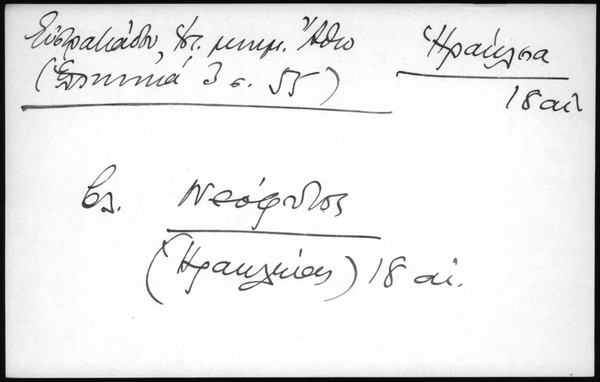 Εὐστρατιάδου, Ἱστ. μνημ. Ἄθω
(Ἑλληνικά 3 σ. 55)
Ἡράκλεια
18 αἰ.
βλ. Νεόφυτος
(Ἡρακλείας) 18 αἰ.